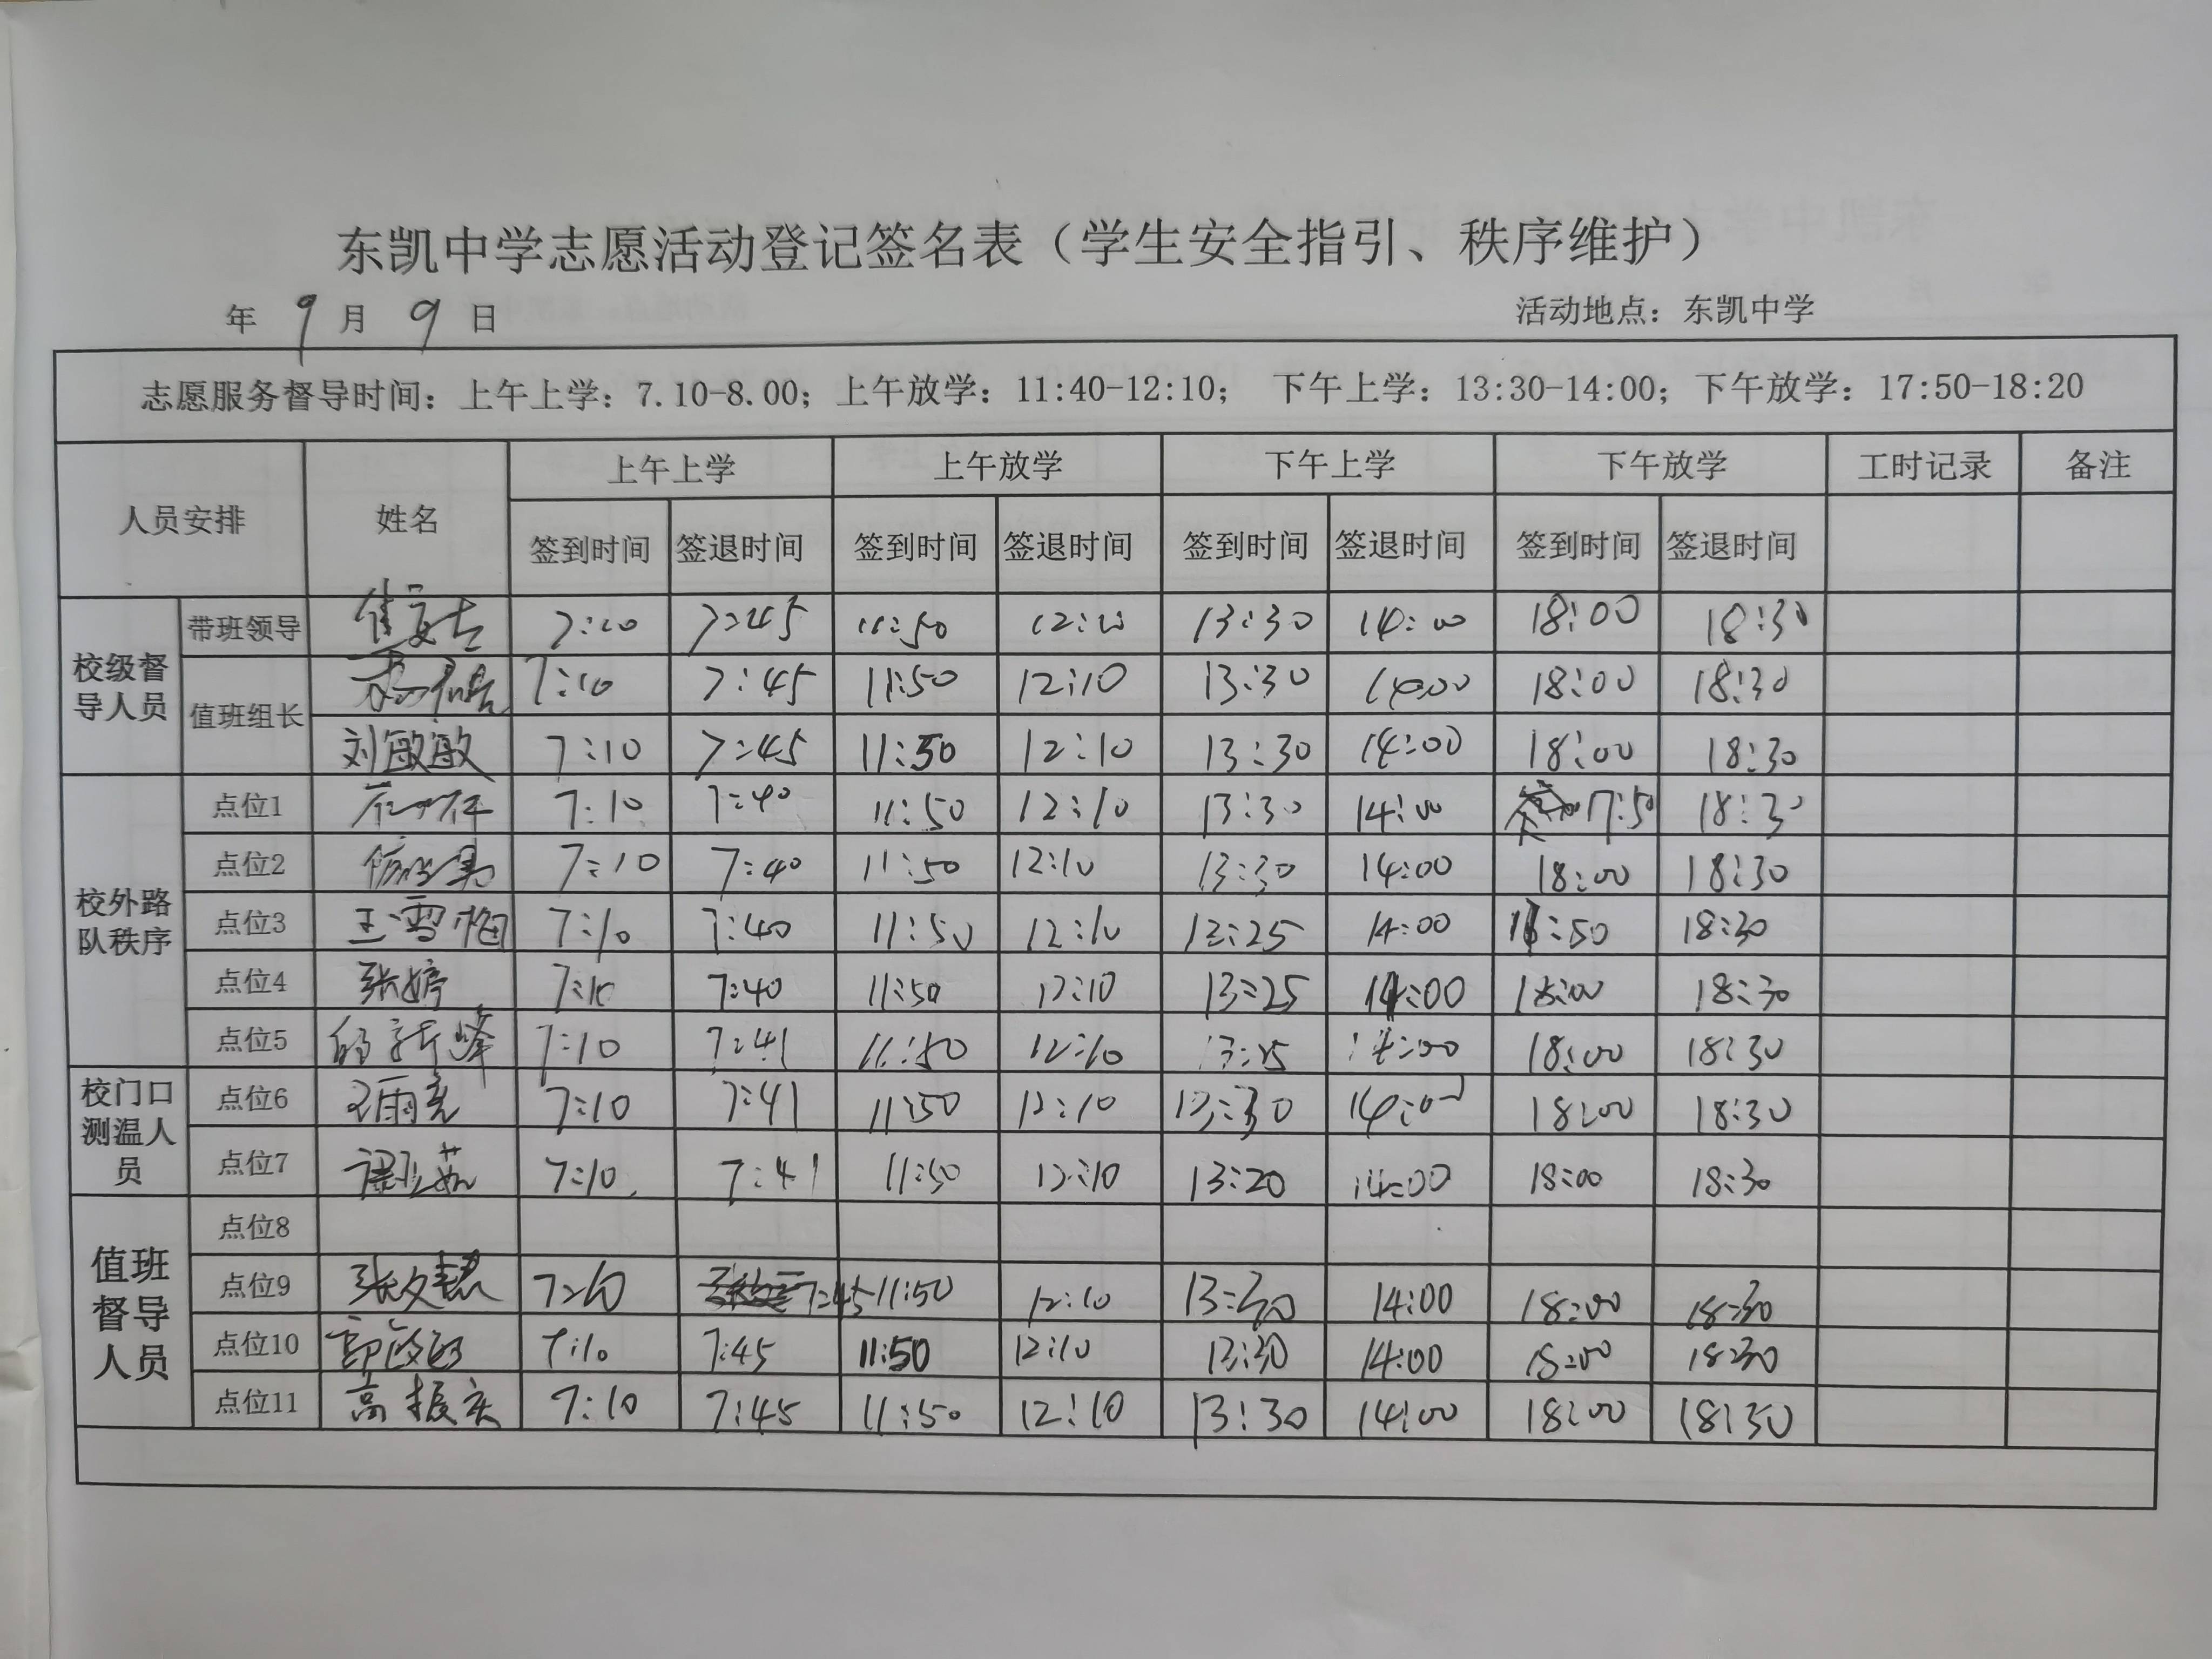 东凯中学志愿活动登记签名表（学生安全指引、秩序维护）
年 9 月 9 日 活动地点：东凯中学
志愿服务督导时间：上午上学：7.10-8.00；上午放学：11:40-12:10； 下午上学：13:30-14:00；下午放学：17:50-18:20
人员安排 姓名 上午上学 上午放学 下午上学 下午放学 工时记录 备注
签到时间 签退时间 签到时间 签退时间 签到时间 签退时间 签到时间 签退时间
校级督导人员 带班领导 7:10 7:45 11:50 12:10 13:30 14:00 18:00 18:30
值班组长 7:10 7:45 11:50 12:10 13:30 14:00 18:00 18:30
刘敏敏 7:10 7:45 11:50 12:10 13:30 14:00 18:00 18:30
校外路队秩序 点位1 7:10 7:40 11:50 12:10 13:30 14:00 17:50 18:30
点位2 7:10 7:40 11:50 12:10 13:30 14:00 18:00 18:30
点位3 王雪梅 7:10 7:40 11:50 12:10 13:25 14:00 :50 18:30
点位4 张婷 7:10 7:40 11:50 12:10 13:25 14:00 18:00 18:30
点位5 7:10 7:41 11:50 12:10 13:25 14:00 18:00 18:30
校门口测温人员 点位6 王雨亮 7:10 7:41 11:50 12:10 13:30 14:00 18:00 18:30
点位7 7:10 7:41 11:50 12:10 13:20 14:00 18:00 18:30
值班督导人员 点位8
点位9 张文慧 7:10 7:45 11:50 12:10 13:30 14:00 18:00 18:30
点位10 7:10 7:45 11:50 12:10 13:30 14:00 18:00 18:30
点位11 高振 7:10 7:45 11:50 12:10 13:30 14:00 18:00 18:30